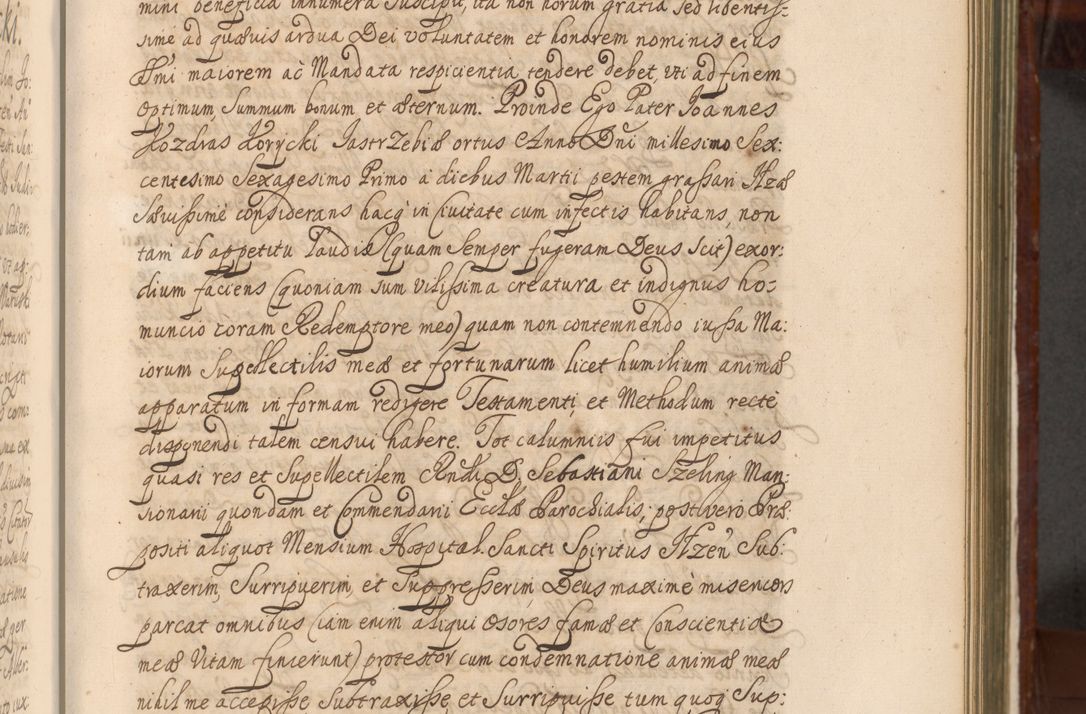 mini beneficia innumera suscipit, ita non horum gratia sed libentis-
sime ad quævis ardua Dei voluntatem et honorem nominis eius
SSmi maiorem ac Mandata respicientia tendere debet, uti ad finem
optimum, summum bonum et æternum. Proinde Ego Pater Joannes
Kozdras Korycki Jastrzebiæ ortus Anno Dni millesimo Sex:
centesimo Sexagesimo Primo a diebus Martii pestem grassari Ilzæ
sævissimè considerans hacq in Civitate cum infectis habitans, non
tam ab appetitu laudis (quam semper fugeram Deus scit) exor:
dium faciens (quoniam sum vilissima creatura et indignus ho-
muncio coram Redemptore meo) quam non contemnendo iussa Ma:
iorum supellectilis meæ et fortunarum licet humilium animæ
apparatum in formam redigere Testamenti et Methodum rectè
disponendi talem censui habere. Tot calumniis fui impetitus
quasi res et supellectilem Rndi D. Sebastiani Szeling Man:
sionarii quondam et Commendarii Ecclæ Parochialis, post vero Præ
positi aliquot Mensium Hospital. Sancti Spiritus Ilzen Sub:
traxerim, Surripuerim, et Suppresserim, Deus maximè misericors
parcat omnibus (iam enim aliqui osores famæ et Conscientiæ
meæ Vitam finierunt) protestor cum condemnatione animæ meæ
nihil me accepisse Subtraxisse et Surripuisse tum quoq Sup: